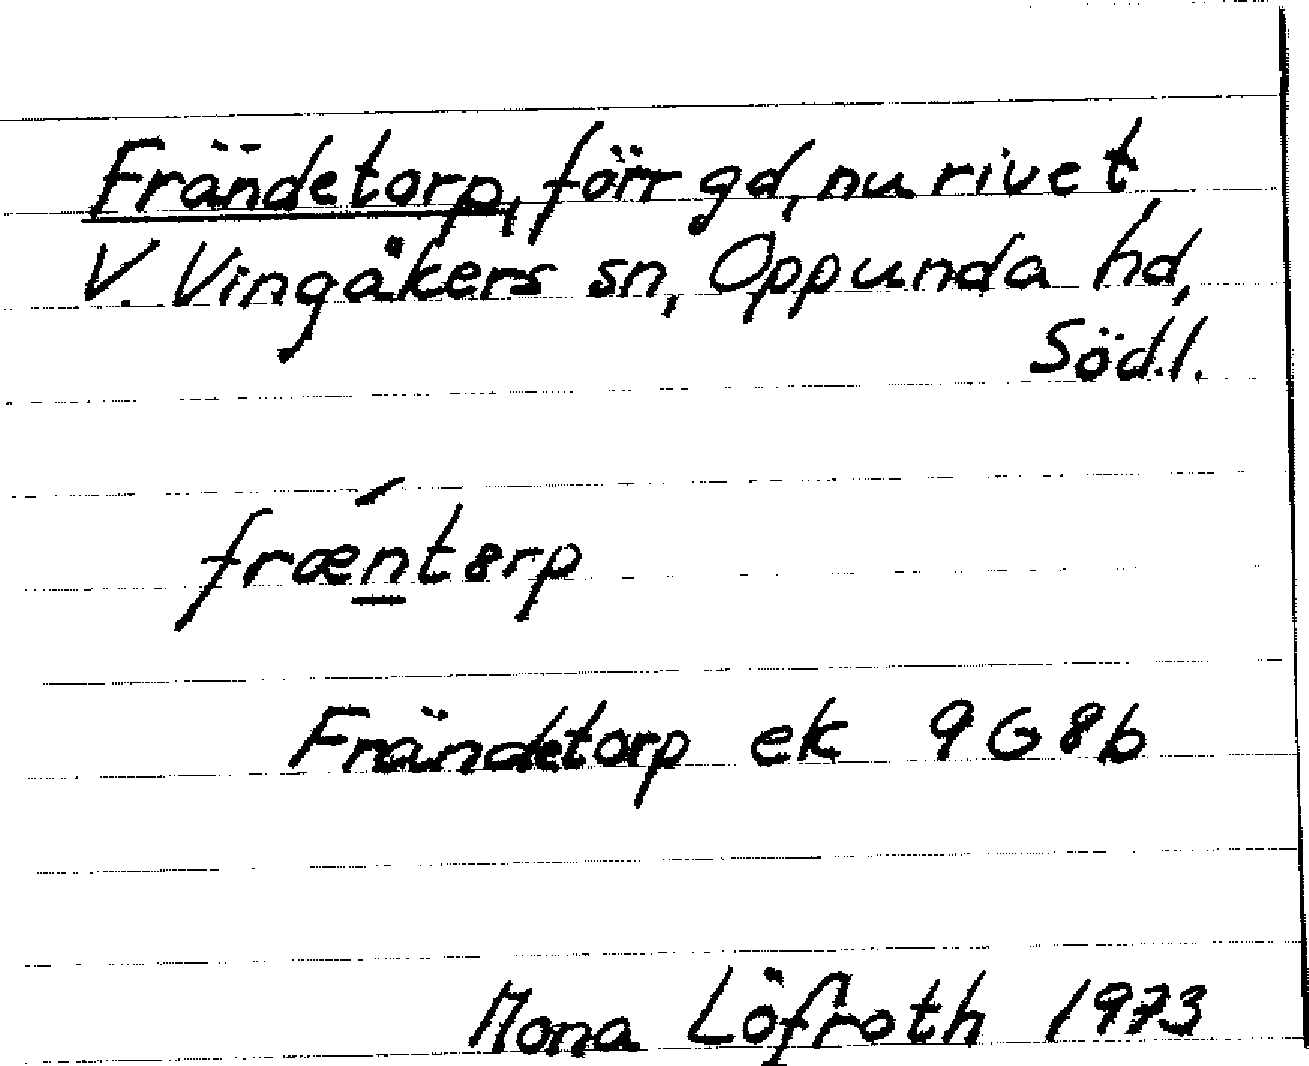 Frändetorp, förr gd, nu rivet
V. Vingåkers sn, Oppunda hd,
Södl.
frænt8rp
Frändetorp ek 9G8b
Mona Löfroth 1973